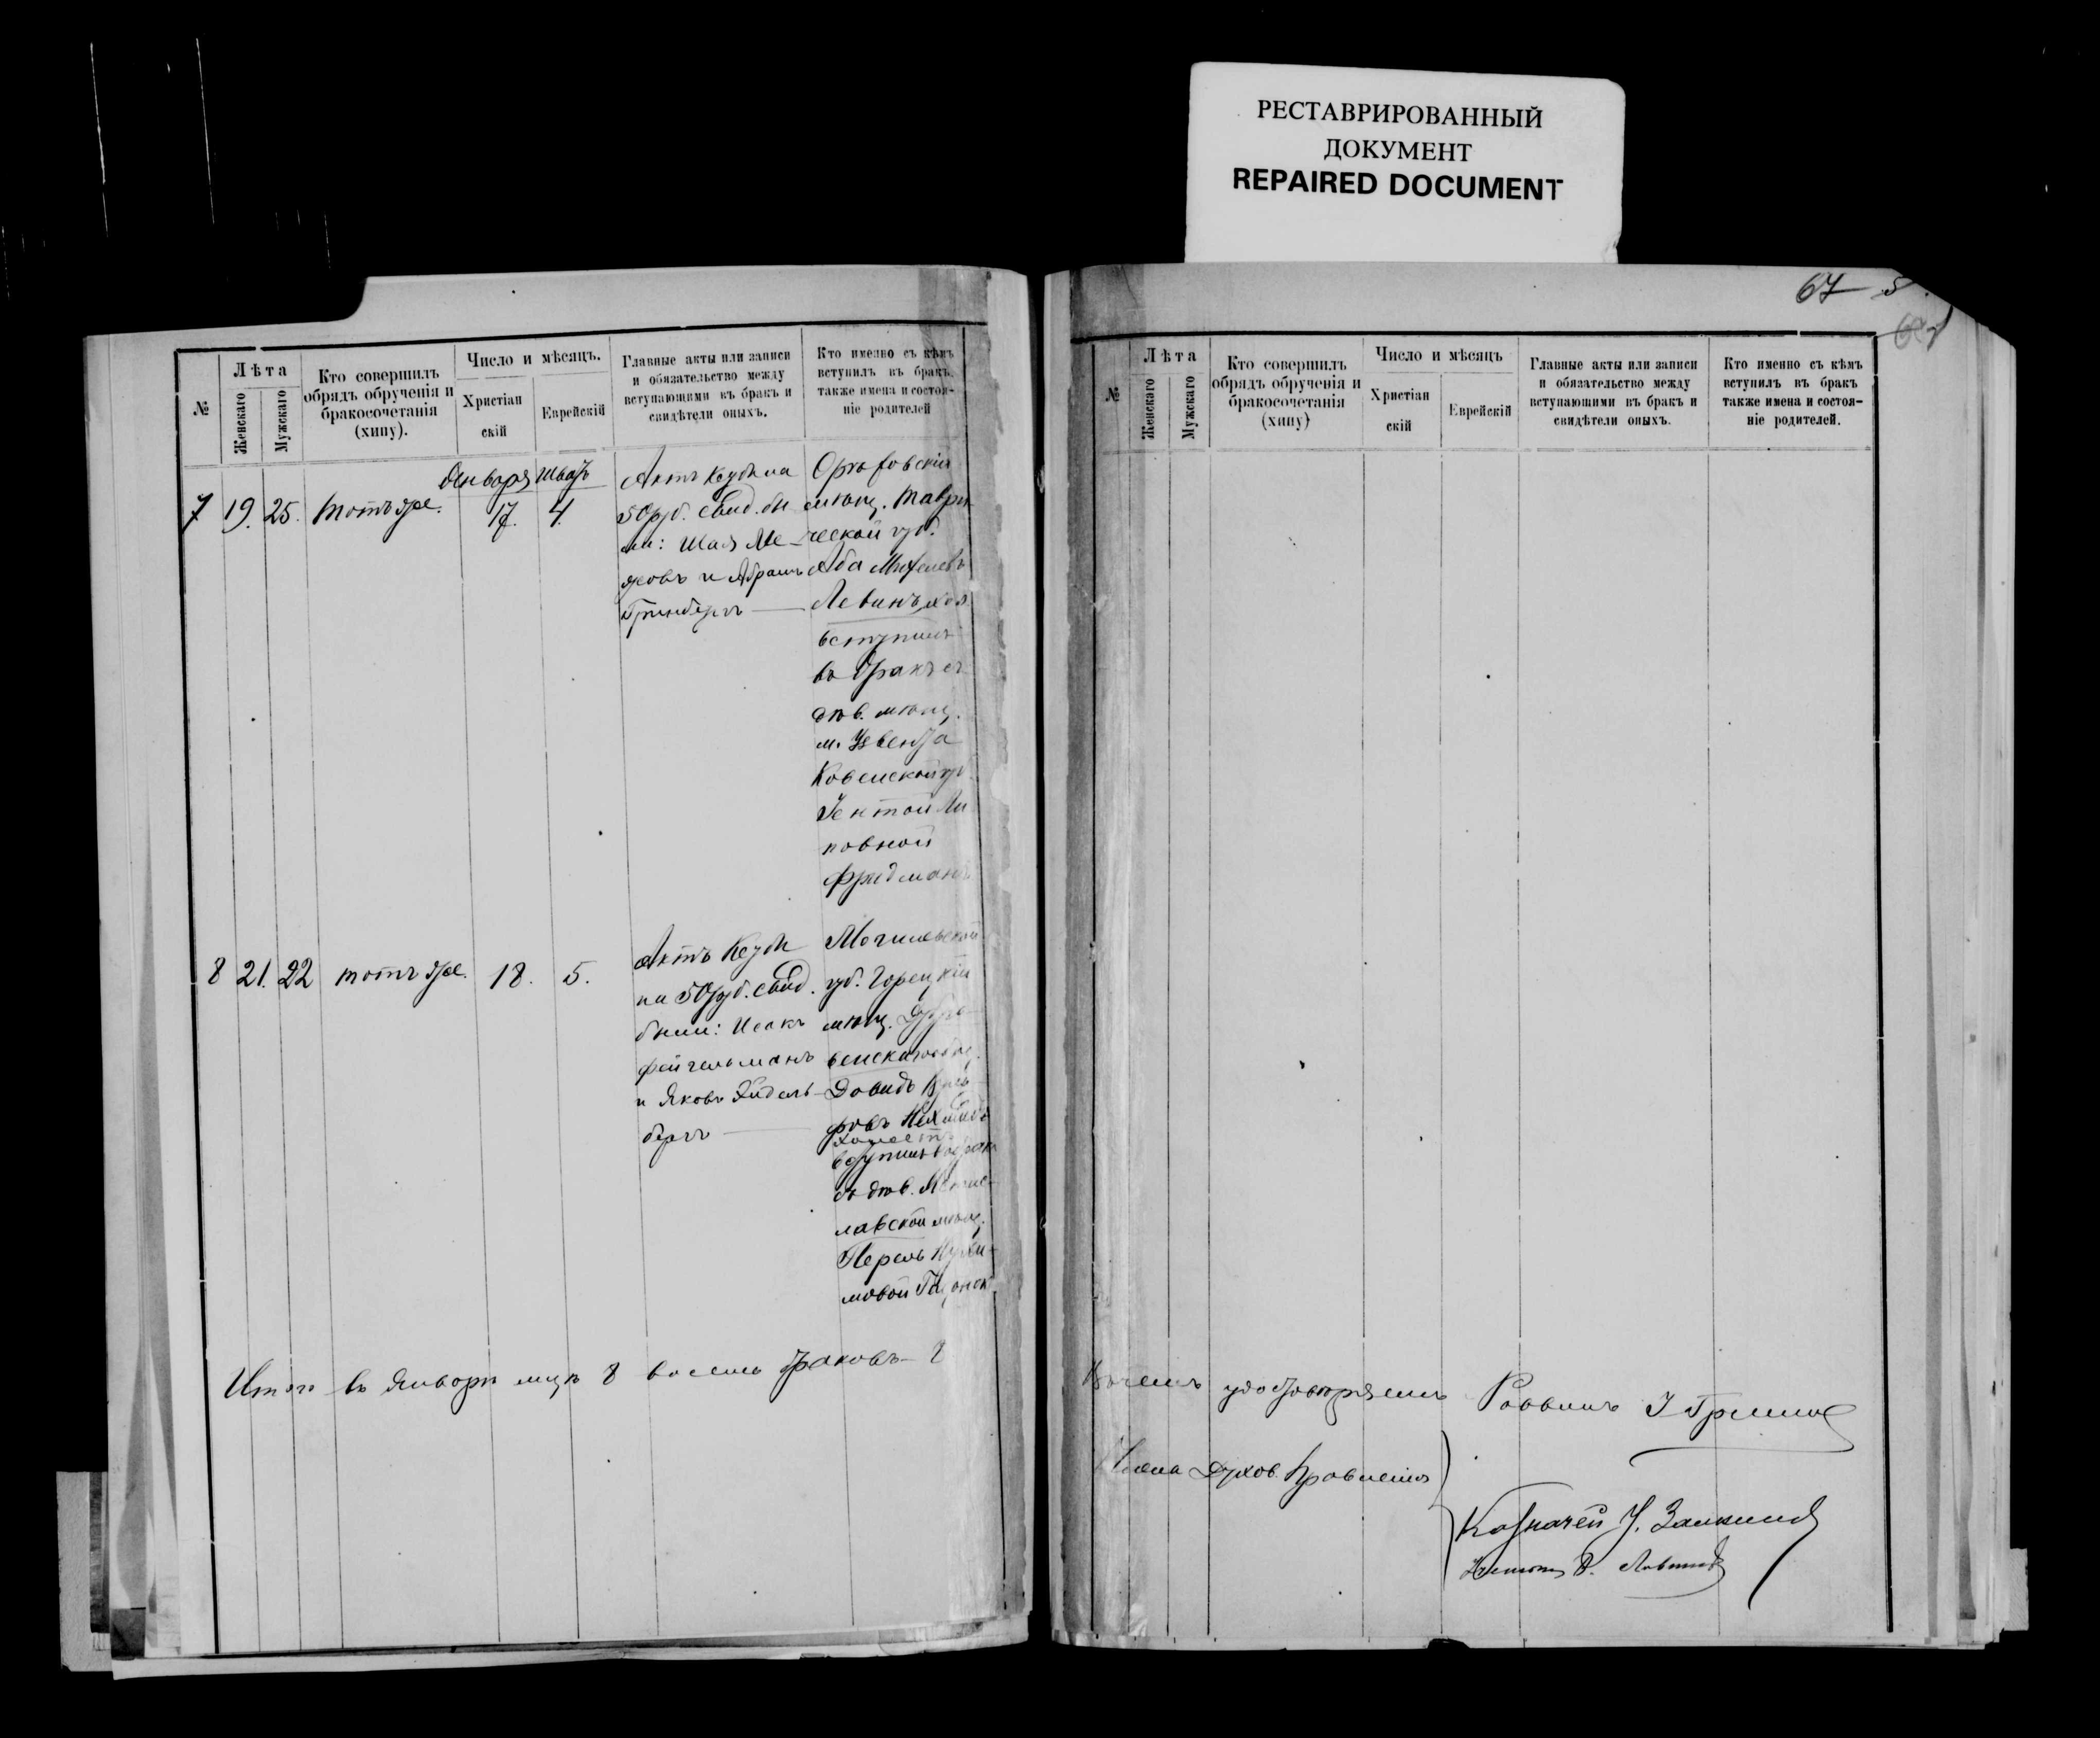 РЕСТАВРИРОВАННЫЙ
ДОКУМЕНТ
REPAIRED DOCUMENT
№
Лѣта
Женскаго
Мужскаго
Кто совершилъ
обрядъ обрученія и
бракосочетанія
(хипу).
Число и мѣсяцъ.
Христіан
скій
Еврейскій
Главные акты или записи
и обязательство между
вступающими въ бракъ и
свидѣтели оныхъ.
Кто именно съ кѣмъ
вступилъ въ бракъ,
также имена и состоя-
ніе родителей
Января Шватъ
7 19. 25. тотъ же. 17. 4.
Актъ Кеубы на
50 руб. Свид. бы
ли: Шая Ме
и Абрамъ
Гринбергъ
Орѣховскій
мѣщ. Таври
ческой губ.
Аба
Левинъ, хол.
вступилъ
въ бракъ съ
дѣв. мѣщ.
м.
Ковенской губ.
Ли
повной
Фридманъ
8 21. 22 тотъ же. 18. 5.
Актъ Кеубы
на 50 руб. Свид.
были: Исакъ
Фейгельманъ
и Яковъ Эйдель
бергъ
Могилевской
губ. Горецкій
мѣщ. Дубро
венскаго общ.
Довидъ
холостъ
вступилъ въ бракъ
съ дѣв. Мстис-
лавской мѣщ.
Перель
мовой
Итого въ Январѣ мцѣ 8 восемь браковъ - 8
67 5
№
Лѣта
Женскаго
Мужскаго
Кто совершилъ
обрядъ обрученія и
бракосочетанія
(хипу)
Число и мѣсяцъ
Христіан
скій
Еврейскій
Главные акты или записи
и обязательство между
вступающими въ бракъ и
свидѣтели оныхъ.
Кто именно съ кѣмъ
вступилъ въ бракъ
также имена и состоя-
ніе родителей.
удостовѣряемъ Раввинъ
Члена Духов. Правленія
Казначей